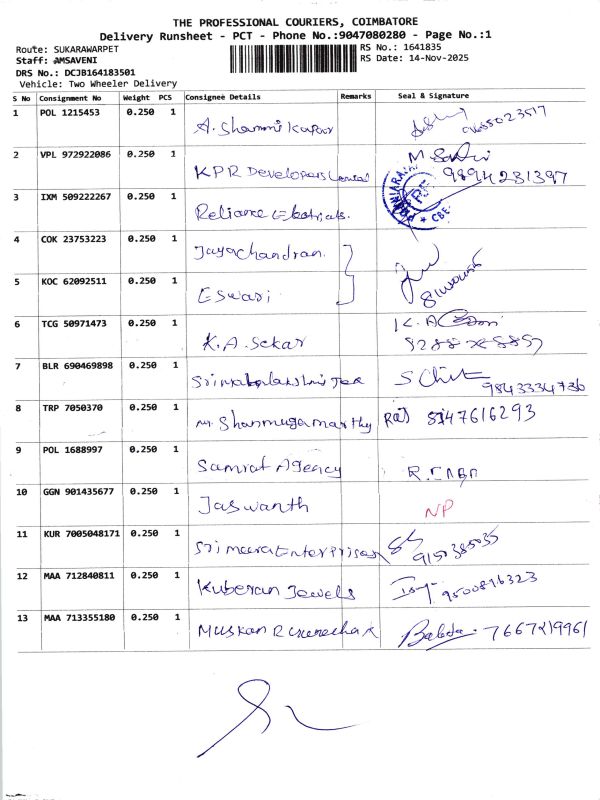 THE PROFESSIONAL COURIERS, COIMBATORE
Delivery Runsheet - PCT - Phone No.:9047080280 - Page No.:1
Route: SUKARAWARPET
RS No.: 1641835
Staff: AMSAVENI
RS Date: 14-Nov-2025
DRS No.: DCJB164183501
Vehicle: Two Wheeler Delivery
S No Consignment No Weight PCS Consignee Details Remarks Seal & Signature
1 POL 1215453 0.250 1 A. Shammi Kapoor
2 VPL 972922086 0.250 1 KPR Developers 9894231397
3 IXM 509222267 0.250 1 Reliance
4 COK 23753223 0.250 1 Jayachandran.
5 KOC 62092511 0.250 1 Eswari
6 TCG 50971473 0.250 1 K.A. Sekar K.A
7 BLR 690469898 0.250 1 9843334736
8 TRP 7050370 0.250 1 Raj 8147616293
9 POL 1688997 0.250 1 Samrat Agency
10 GGN 901435677 0.250 1 Jaswanth NP
11 KUR 7005048171 0.250 1 Sri meera Enterprises 9150385035
12 MAA 712840811 0.250 1 Kuberan Jewels 9500896323
13 MAA 713355180 0.250 1 Muskan 7667219961